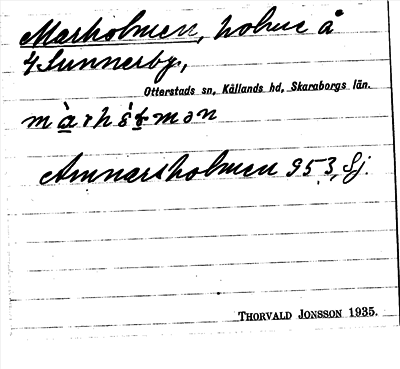 Marholmen, holme å
4 Sunnerby,
Otterstads sn, Kållands hd, Skaraborgs län.
Amnarsholmen 953, Sj.
THORVALD JONSSON 1935.